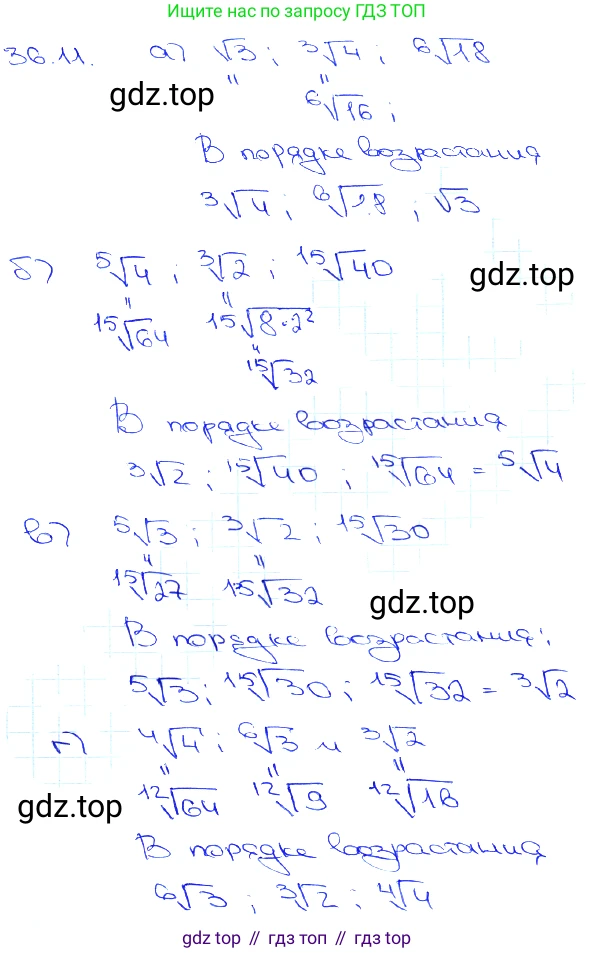 Ищите нас по запросу ГДЗ ТОП
36.11. а) √3 ; ³√4 ; ⁶√18
gdz.top
" "
⁶√16 ;
В порядке возрастания
³√4 ; ⁶√18 ; √3
б) ⁵√4 ; ³√2 ; ¹⁵√40
gdz.top
" "
¹⁵√64 ¹⁵√8·2²
"
¹⁵√32
В порядке возрастания
³√2 ; ¹⁵√40 ; ¹⁵√64 = ⁵√4
в) ⁵√3 ; ³√2 ; ¹⁵√30
" "
¹⁵√27 ¹⁵√32
gdz.top
В порядке возрастания:
⁵√3 ; ¹⁵√30 ; ¹⁵√32 = ³√2
г) ⁴√4 ; ⁶√3 и ³√2
" " "
¹²√64 ¹²√9 ¹²√16
gdz.top
В порядке возрастания
⁶√3 ; ³√2 ; ⁴√4
gdz top // гдз топ // gdz.top